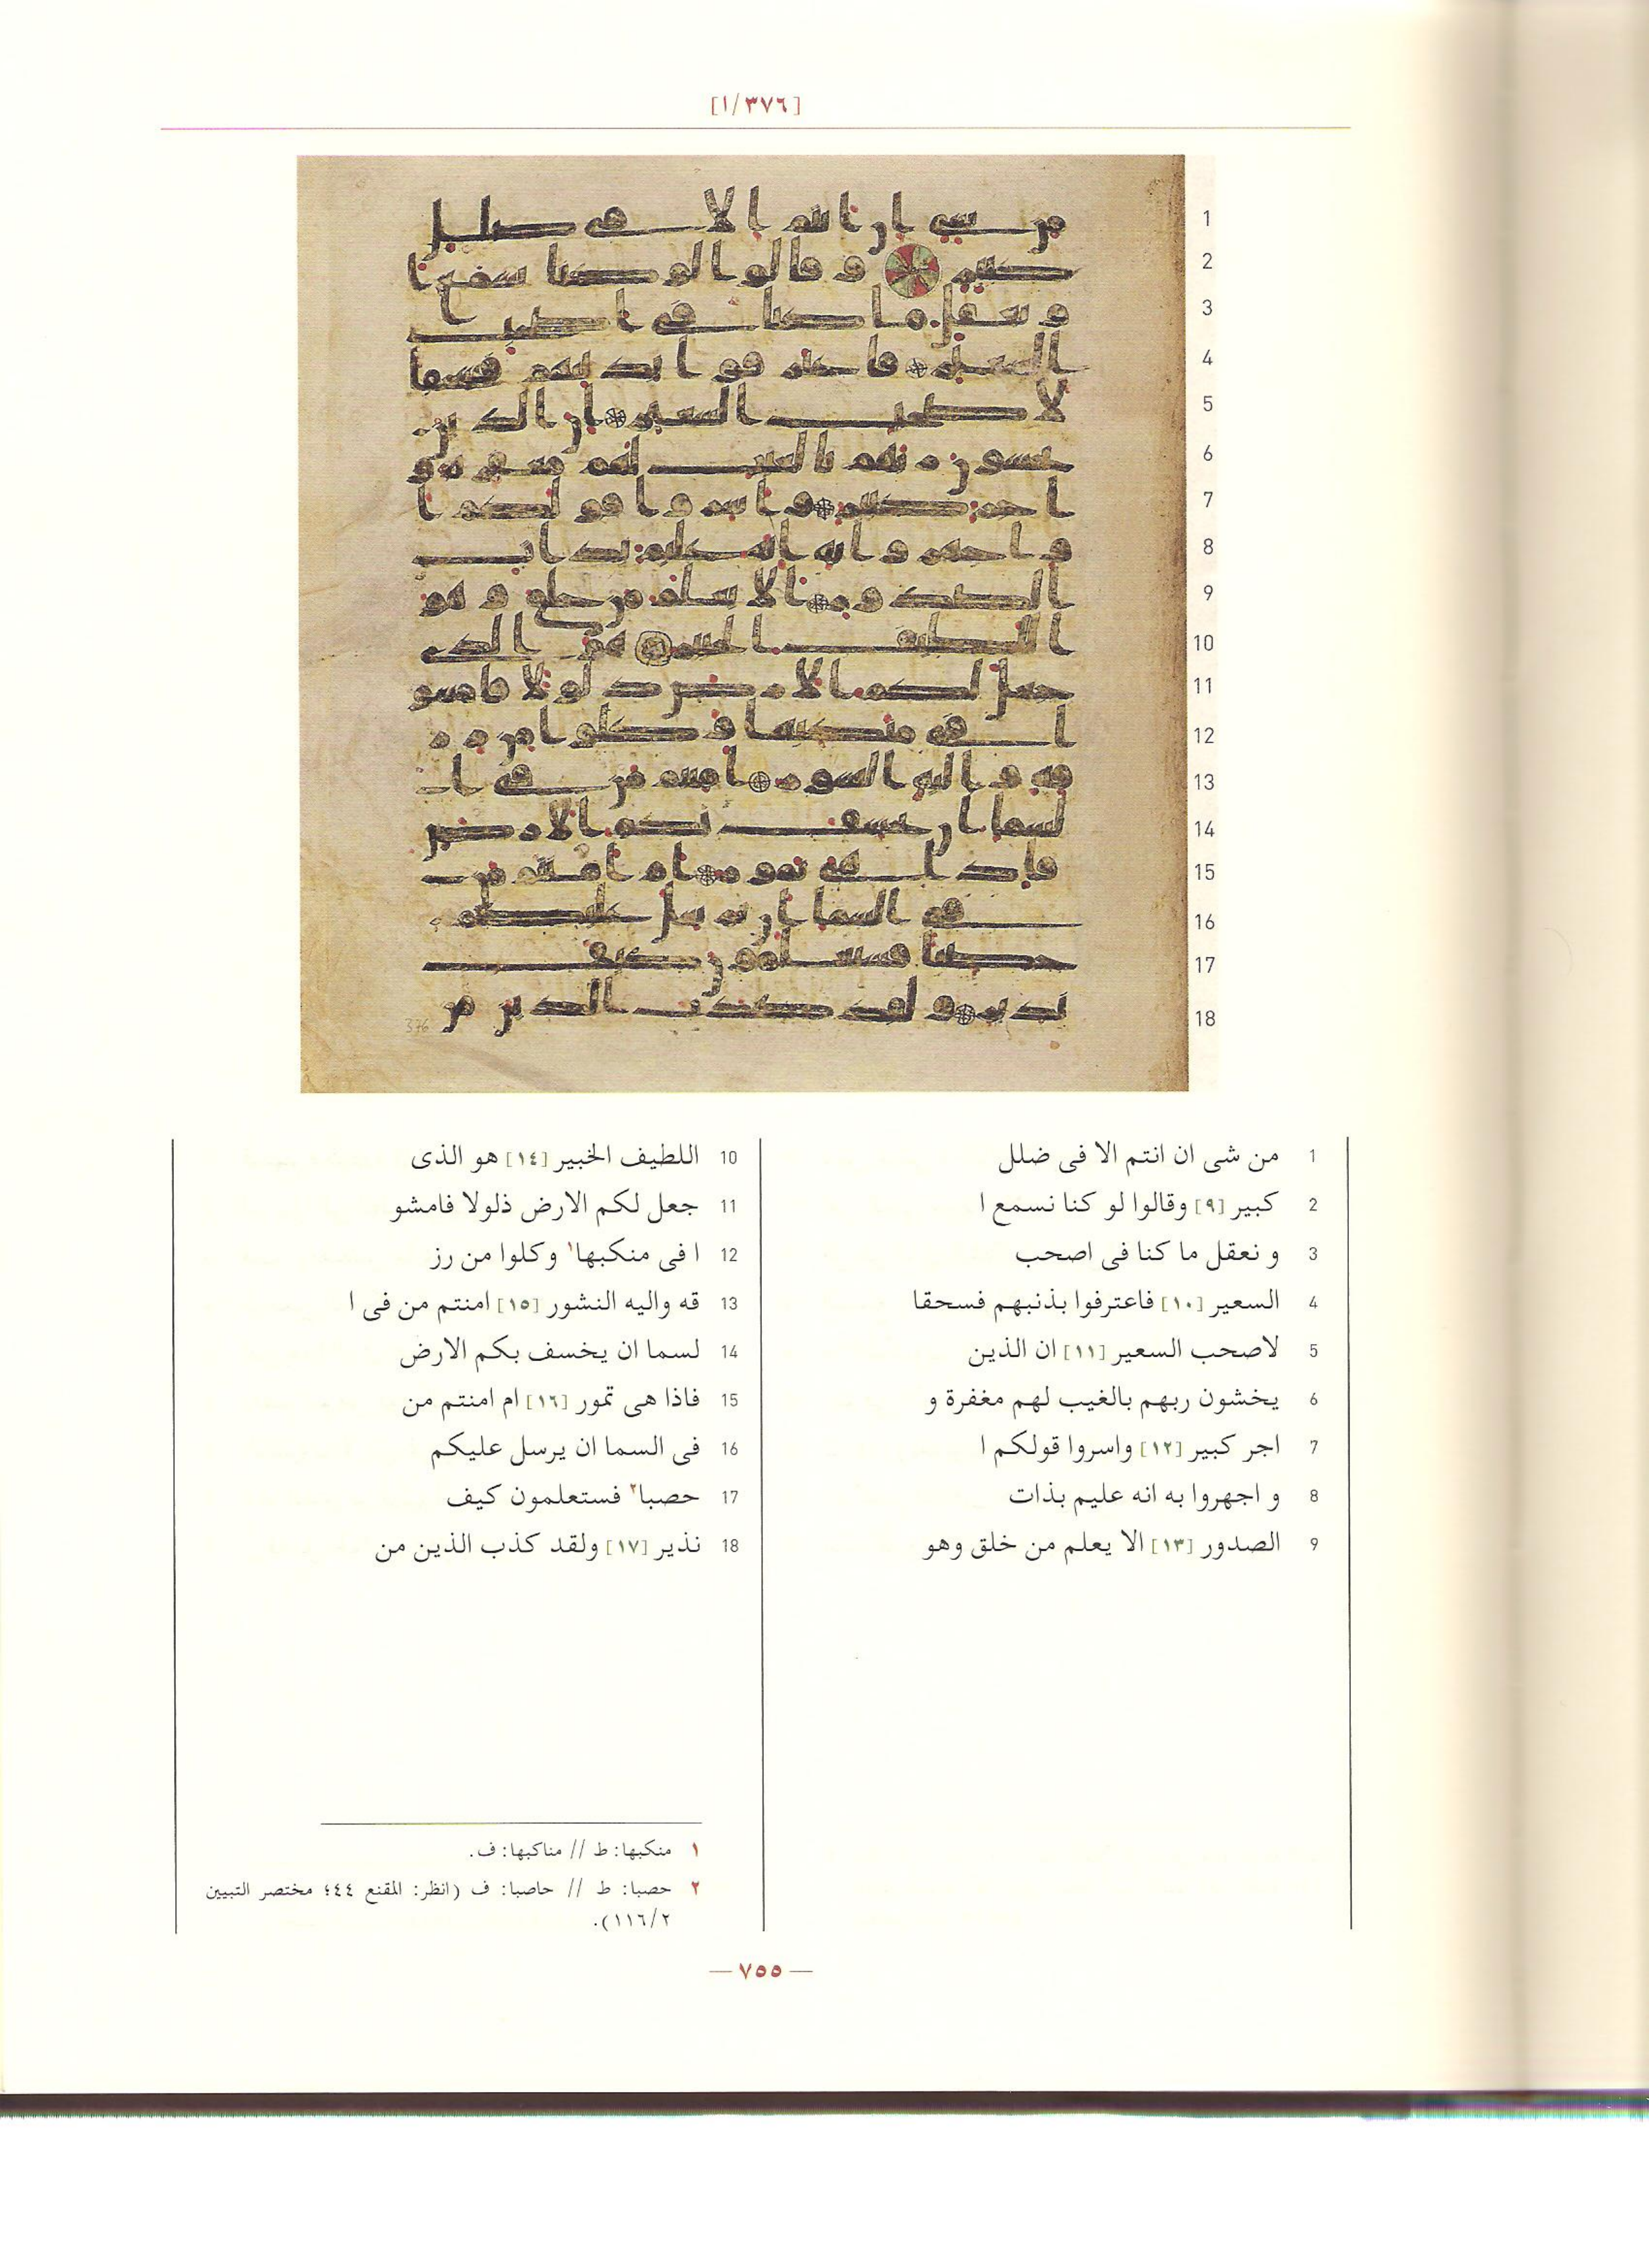 [١/٣٧٦]
1 من شى ان انتم الا فى ضلل
2 كبير [٩] وقالوا لو كنا نسمع ا
3 و نعقل ما كنا فى اصحب
4 السعير [١٠] فاعترفوا بذنبهم فسحقا
5 لاصحب السعير [١١] ان الذين
6 يخشون ربهم بالغيب لهم مغفرة و
7 اجر كبير [١٢] واسروا قولكم ا
8 و اجهروا به انه عليم بذات
9 الصدور [١٣] الا يعلم من خلق وهو
10 اللطيف الخبير [١٤] هو الذى
11 جعل لكم الارض ذلولا فامشو
12 ا فى منكبها١ وكلوا من رز
13 قه واليه النشور [١٥] امنتم من فى ا
14 لسما ان يخسف بكم الارض
15 فاذا هى تمور [١٦] ام امنتم من
16 فى السما ان يرسل عليكم
17 حصبا٢ فستعلمون كيف
18 نذير [١٧] ولقد كذب الذين من
١ منكبها: ط // مناكبها: ف.
٢ حصبا: ط // حاصبا: ف (انظر: المقنع ٤٤؛ مختصر التبيين
١١٦/٢).
— ٧٥٥ —